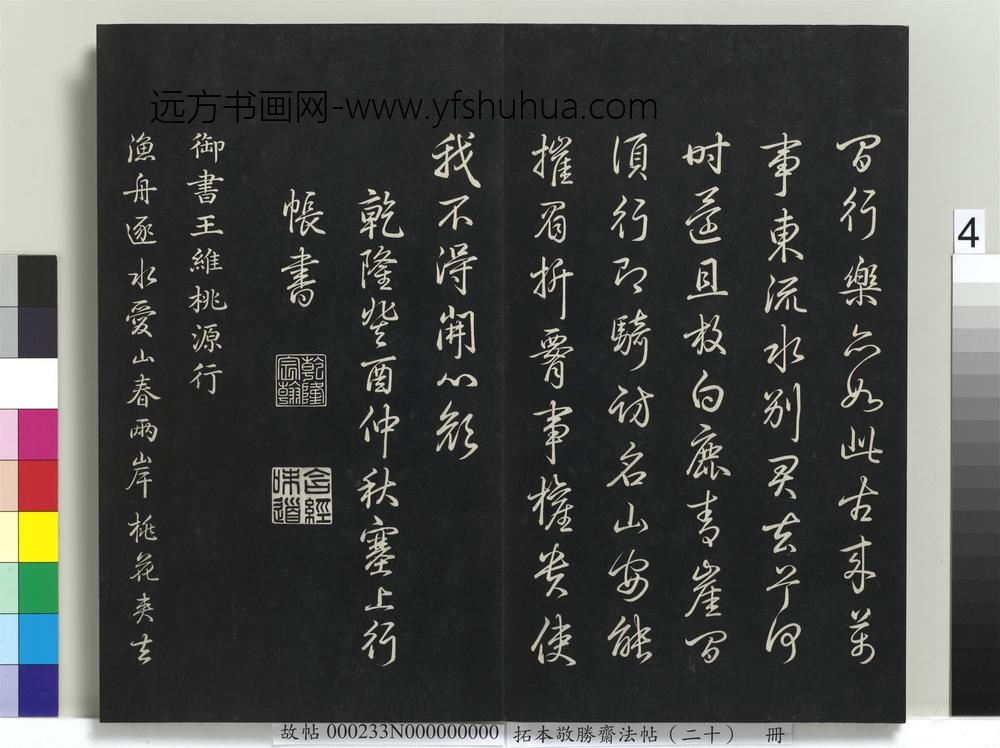 远方书画网-www.yfshuhua.com
間行樂亦如此古来萬
事東流水別君去兮何
時還且放白鹿青崖間
須行即騎訪名山安能
摧眉折腰事權貴使
我不得開心顏
乾隆癸酉仲秋塞上行
帳書
乾隆宸翰
含經味道
御書王維桃源行
漁舟逐水愛山春兩岸桃花夾去
4
故帖 000233N000000000
拓本敬勝齋法帖（二十） 冊